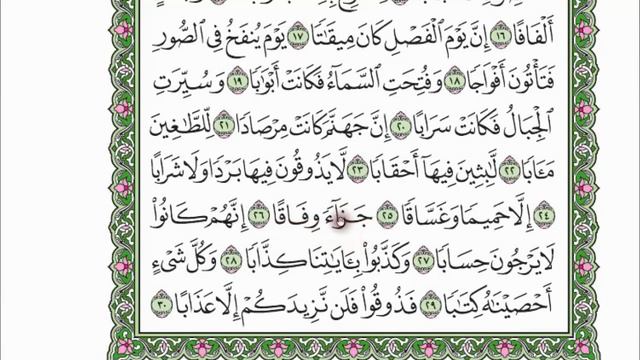 أَلْفَافًا ١٦ إِنَّ يَوْمَ ٱلْفَصْلِ كَانَ مِيقَٰتًا ١٧ يَوْمَ يُنفَخُ فِي ٱلصُّورِ
فَتَأْتُونَ أَفْوَاجًا ١٨ وَفُتِحَتِ ٱلسَّمَآءُ فَكَانَتْ أَبْوَٰبًا ١٩ وَسُيِّرَتِ
ٱلْجِبَالُ فَكَانَتْ سَرَابًا ٢٠ إِنَّ جَهَنَّمَ كَانَتْ مِرْصَادًا ٢١ لِّلطَّٰغِينَ
مَـَٔابًا ٢٢ لَّٰبِثِينَ فِيهَآ أَحْقَابًا ٢٣ لَّا يَذُوقُونَ فِيهَا بَرْدًا وَلَا شَرَابًا
٢٤ إِلَّا حَمِيمًا وَغَسَّاقًا ٢٥ جَزَآءً وِفَاقًا ٢٦ إِنَّهُمْ كَانُوا۟
لَا يَرْجُونَ حِسَابًا ٢٧ وَكَذَّبُوا۟ بِـَٔايَٰتِنَا كِذَّابًا ٢٨ وَكُلَّ شَىْءٍ
أَحْصَيْنَٰهُ كِتَٰبًا ٢٩ فَذُوقُوا۟ فَلَن نَّزِيدَكُمْ إِلَّا عَذَابًا ٣٠